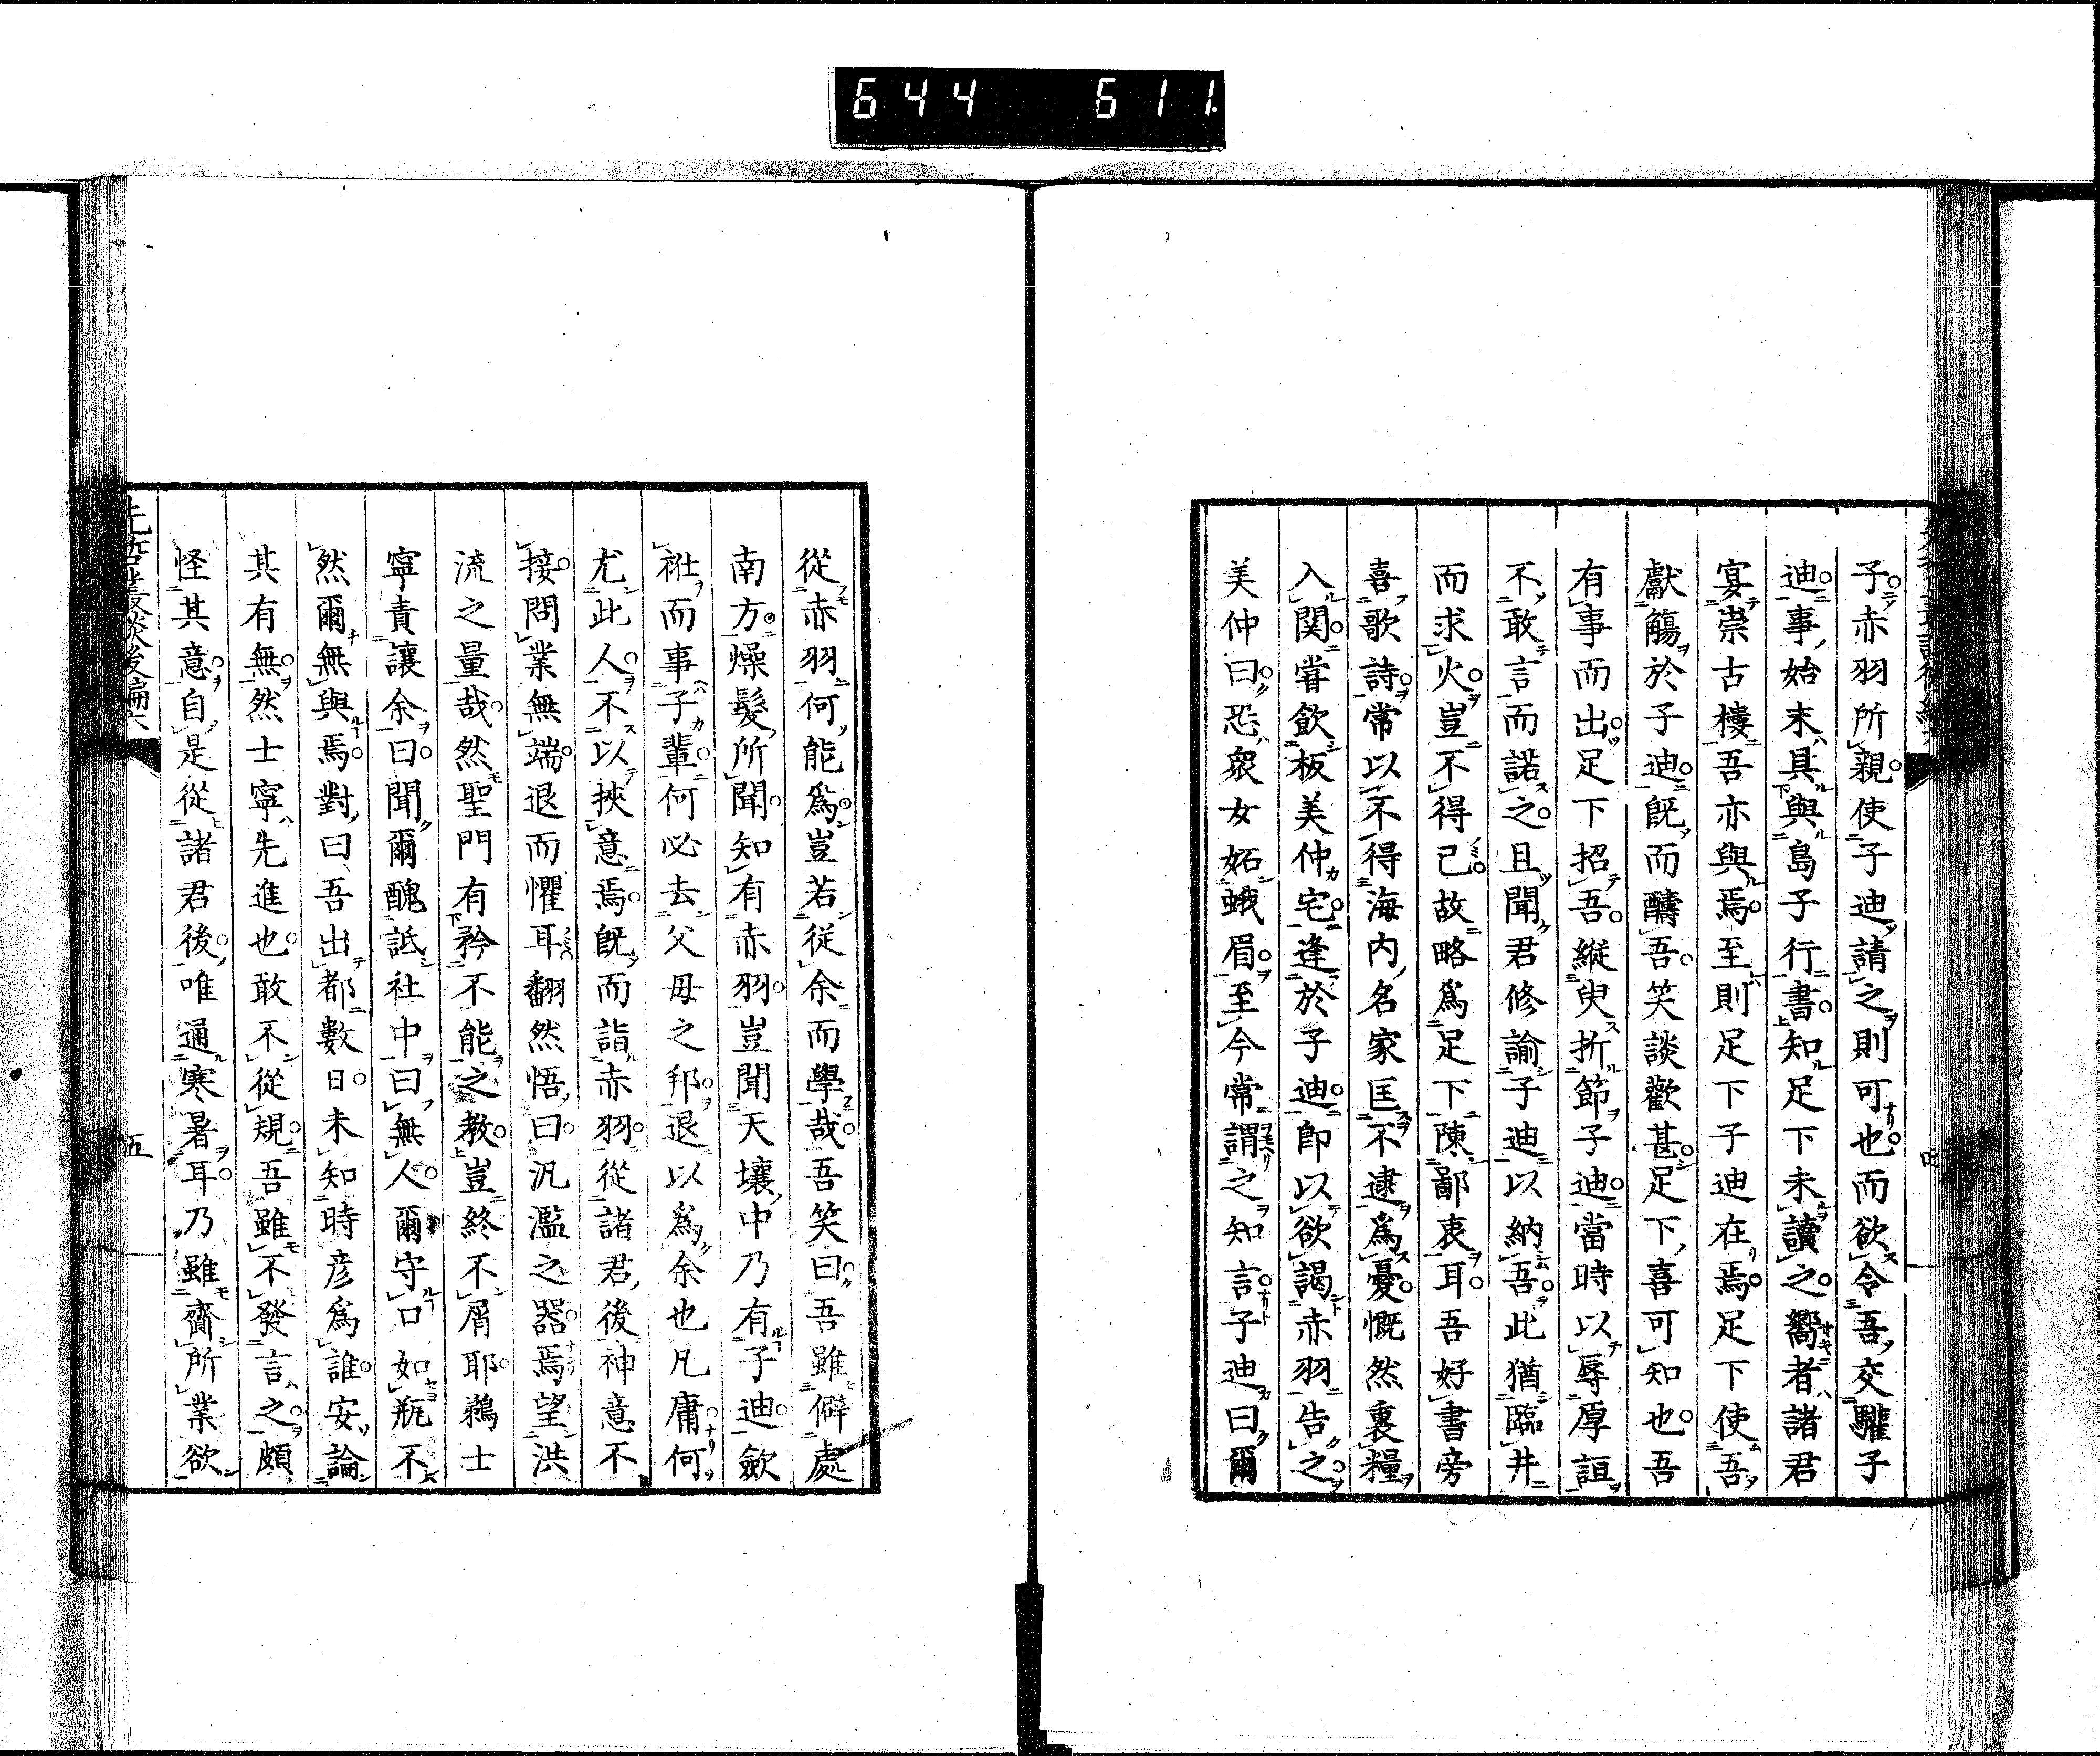 644 611
子赤羽所親使子迪請之則可也而欲令吾交驩子
迪事始末具與島子行書知足下未讀之嚮者諸君
宴崇古樓吾亦與焉至則足下子迪在焉足下使吾
獻觴於子迪既而醻吾笑談歡甚足下喜可知也吾
有事而出足下招吾縱臾折節子迪當時以辱厚誼
不敢言而諾之且聞君修諭子迪以納吾此猶臨井
而求火豈不得已故略爲足下陳鄙衷耳吾好書旁
喜歌詩常以不得海内名家匡不逮爲憂慨然裹糧
入関嘗飲板美仲宅逢於子迪即以欲謁赤羽告之
美仲曰恐衆女妬蛾眉至今常謂之知言子迪曰爾
從赤羽何能爲豈若從余而學哉吾笑曰吾雖僻處
南方燥髮所聞知有赤羽豈聞天壤中乃有子迪歛
衽而事子輩何必去父母之邦退以爲余也凡庸何
尤此人不以挾意焉既而詣赤羽從諸君後神意不
接問業無端退而懼耳翻然悟曰汎濫之器焉望洪
流之量哉然聖門有矜不能之教豈終不屑耶鵜士
寧責讓余曰聞爾醜詆社中曰無人爾守口如瓶不
然爾無與焉對曰吾出都數日未知時彦爲誰安論
其有無然士寧先進也敢不從規吾雖不發言之頗
怪其意自是從諸君後唯通寒暑耳乃雖齎所業欲
先哲叢談後編六
五